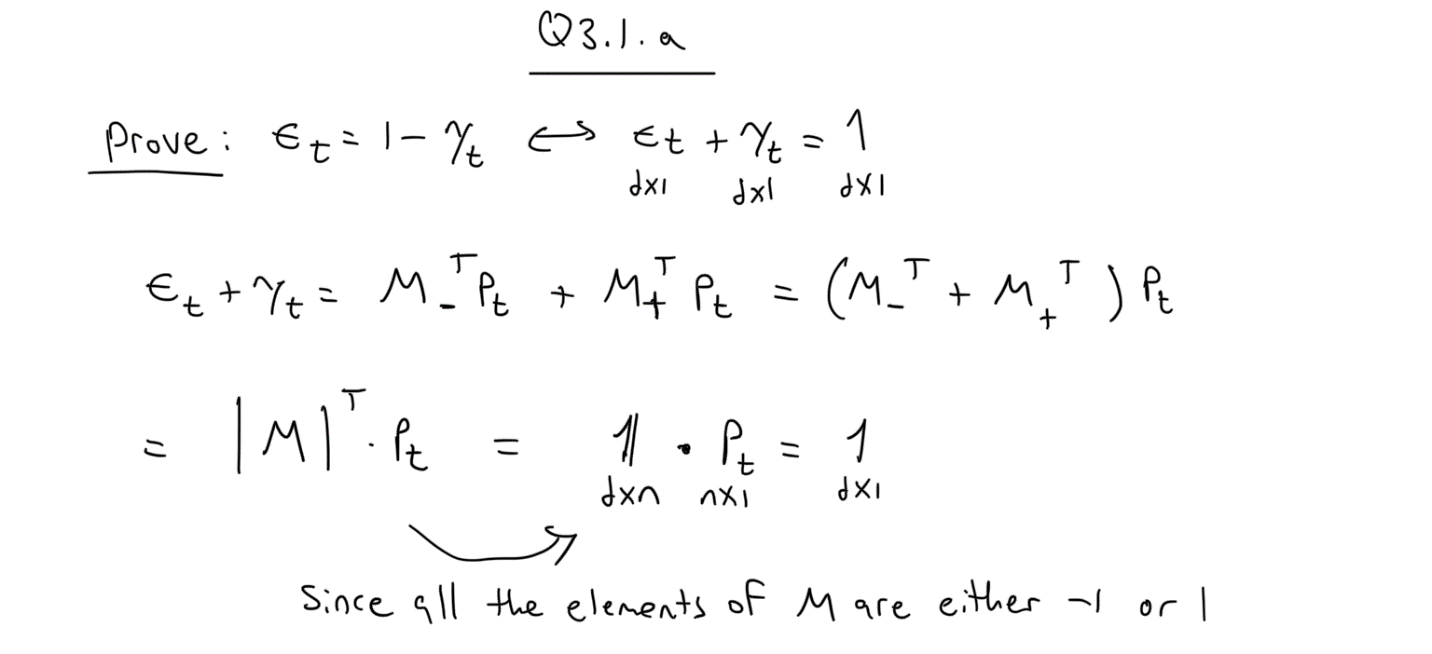 Q3.1.a
Prove: ϵ_t = 1 - γ_t ⟷ ϵ_t + γ_t = 1
dx1 dx1 dx1
ϵ_t + γ_t = M_-^T P_t + M_+^T P_t = (M_-^T + M_+^T) P_t
= |M|^T · P_t = 𝟙 · P_t = 1
dxn nx1 dx1
Since all the elements of M are either -1 or 1